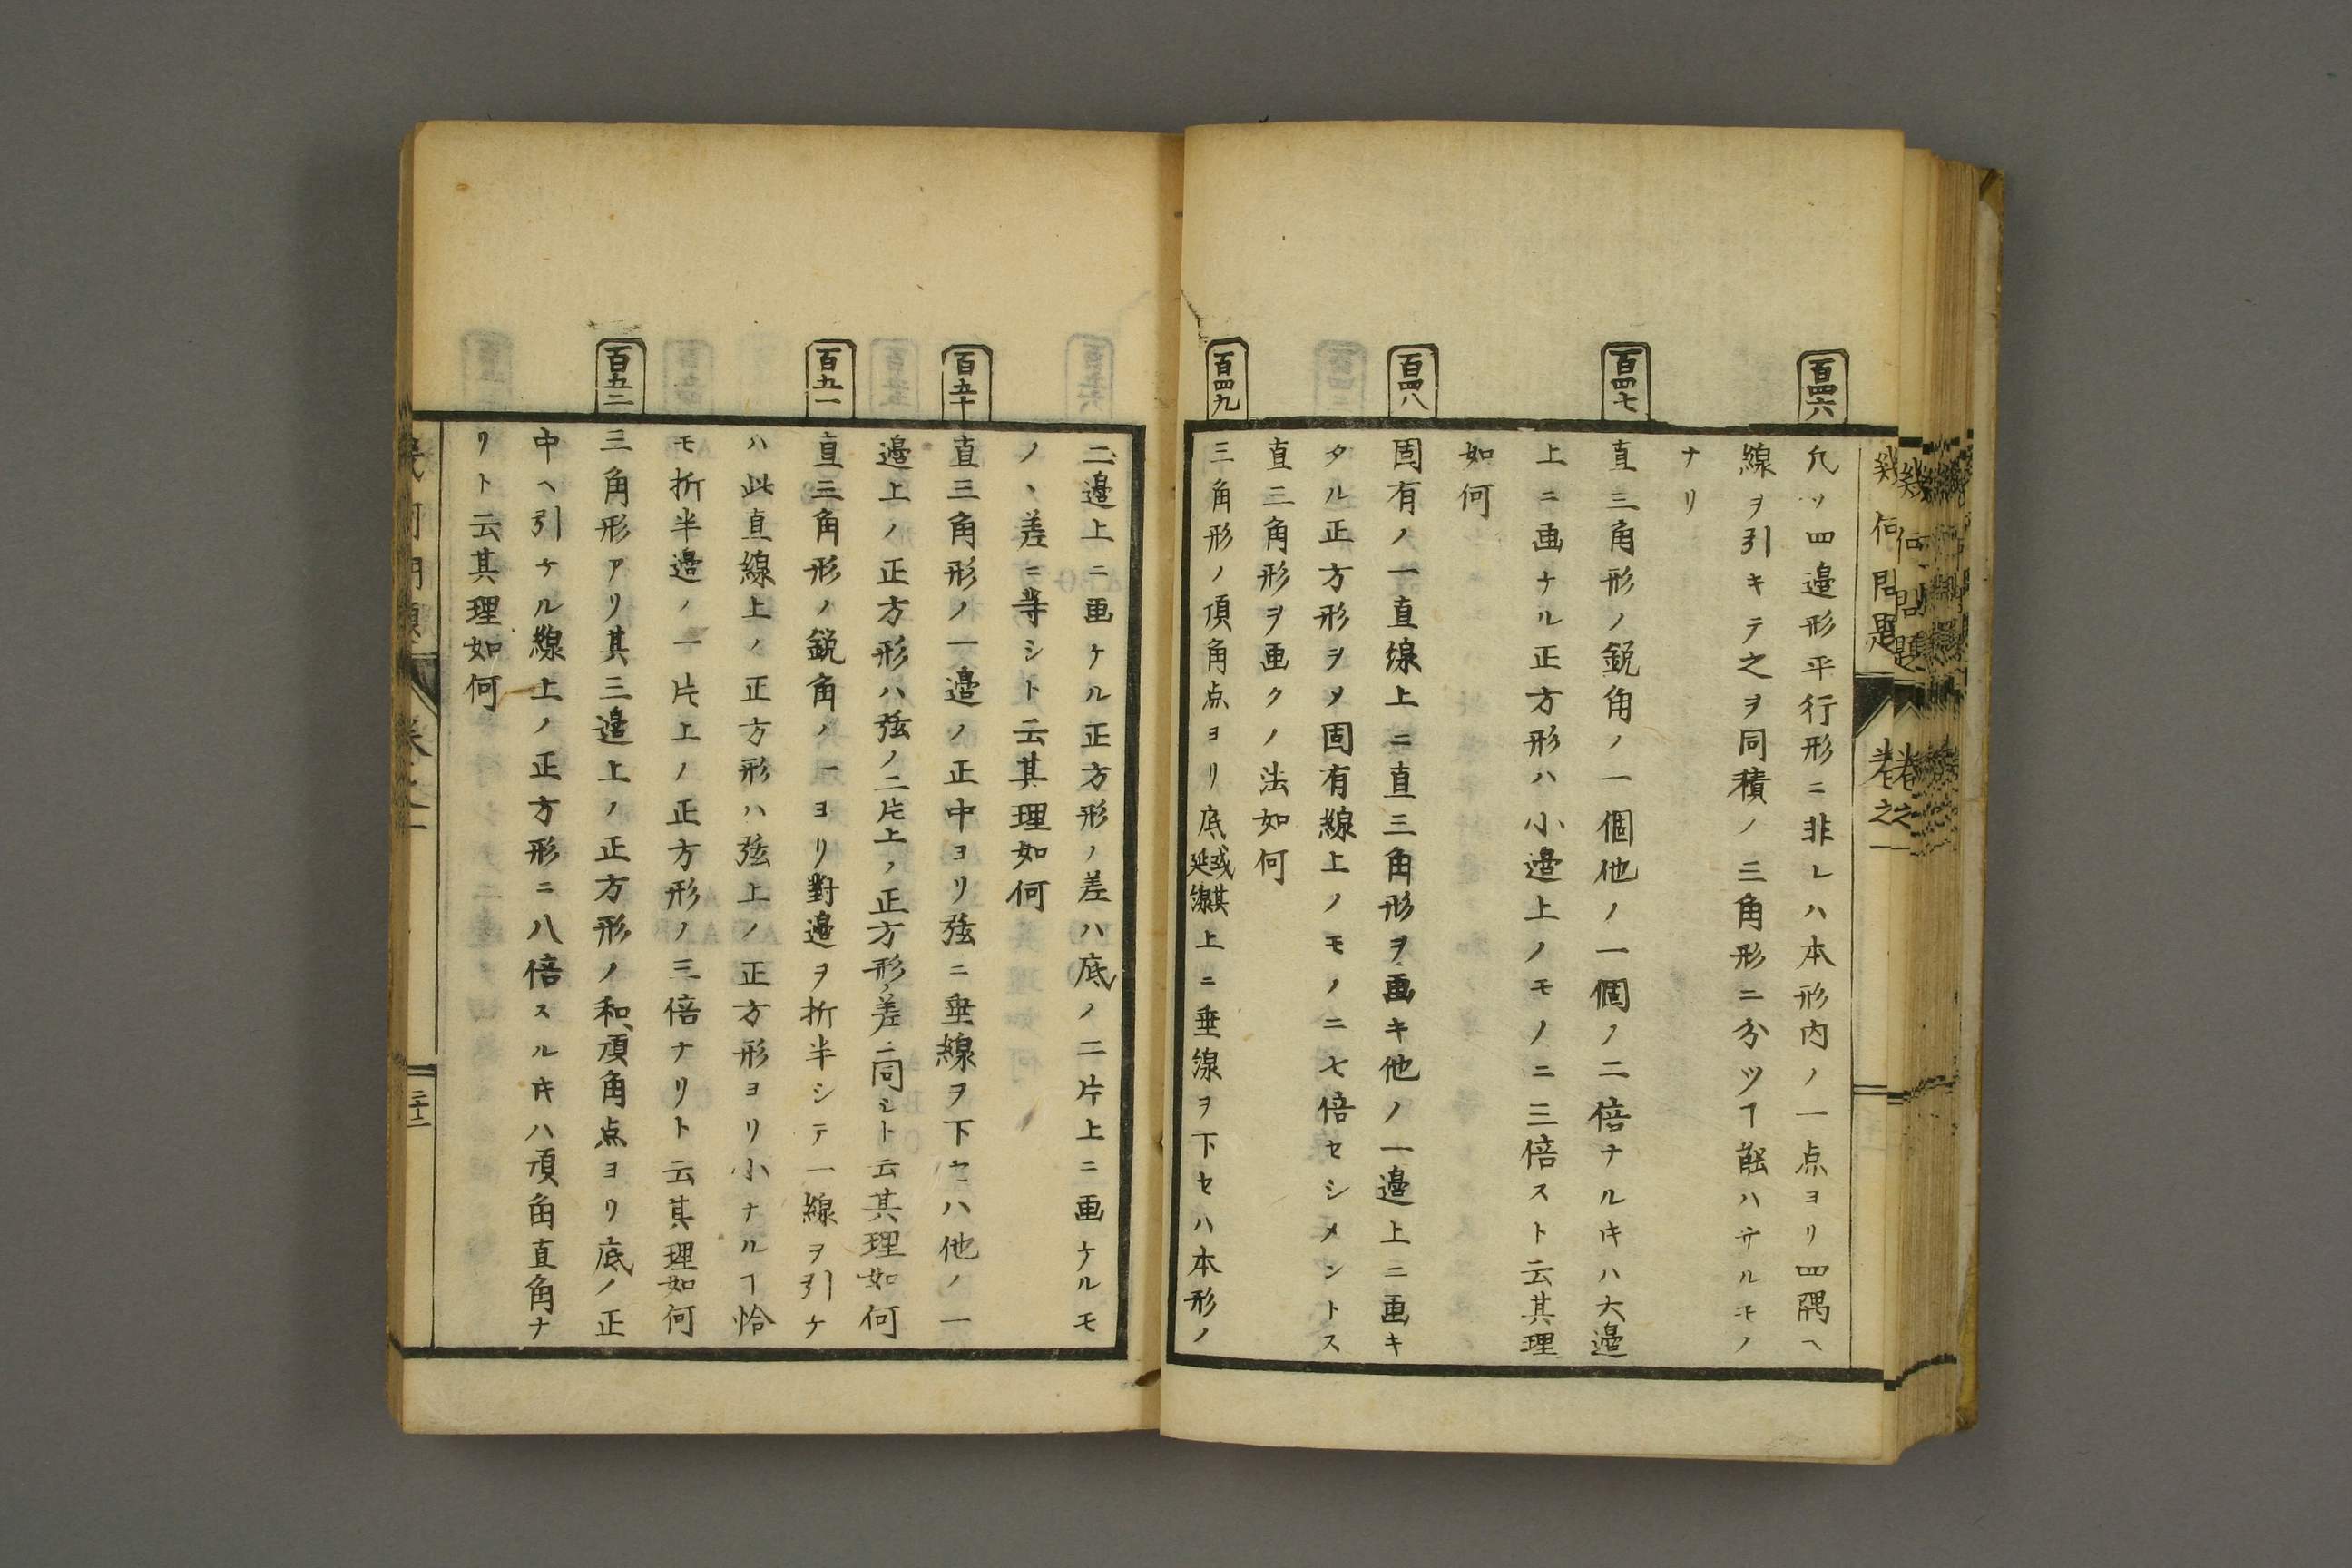 百四六
凢ソ四邉形平行形ニ非レハ本形内ノ一点ヨリ四隅ヘ
線ヲ引キテ之ヲ同積ノ三角形ニ分ツヿ能ハサルモノ
ナリ
百四七
直三角形ノ鋭角ノ一個他ノ一個ノ二倍ナルキハ大邉
上ニ画ナル正方形ハ小邉上ノモノニ三倍スト云其理
如何
百四八
固有ノ一直線上ニ直三角形ヲ画キ他ノ一邉上ニ画キ
タル正方形ヲメ固有線上ノモノニ七倍セシメントス
直三角形ヲ画クノ法如何
百四九
三角形ノ頂角点ヨリ底或其延線上ニ垂線ヲ下セハ本形ノ
二邉上ニ画ケル正方形ノ差ハ底ノ二片上ニ画ケルモ
ノヽ差ニ等シト云其理如何
百五十
直三角形ノ一邉ノ正中ヨリ弦ニ垂線ヲ下セハ他ノ一
邉上ノ正方形ハ弦ノ二片上ノ正方形ノ差ニ同シト云其理如何
百五一
直三角形ノ鋭角ノ一ヨリ對邉ヲ折半シテ一線ヲ引ケ
ハ此直線上ノ正方形ハ弦上ノ正方形ヨリ小ナルヿ恰
モ折半邉ノ一片上ノ正方形ノ三倍ナリト云其理如何
百五二
三角形アリ其三邉上ノ正方形ノ和頂角点ヨリ底ノ正
中ヘ引ケル線上ノ正方形ニ八倍スルキハ頂角直角ナ
リト云其理如何
幾何問題
卷之一
三十二
幾何問題
卷之一